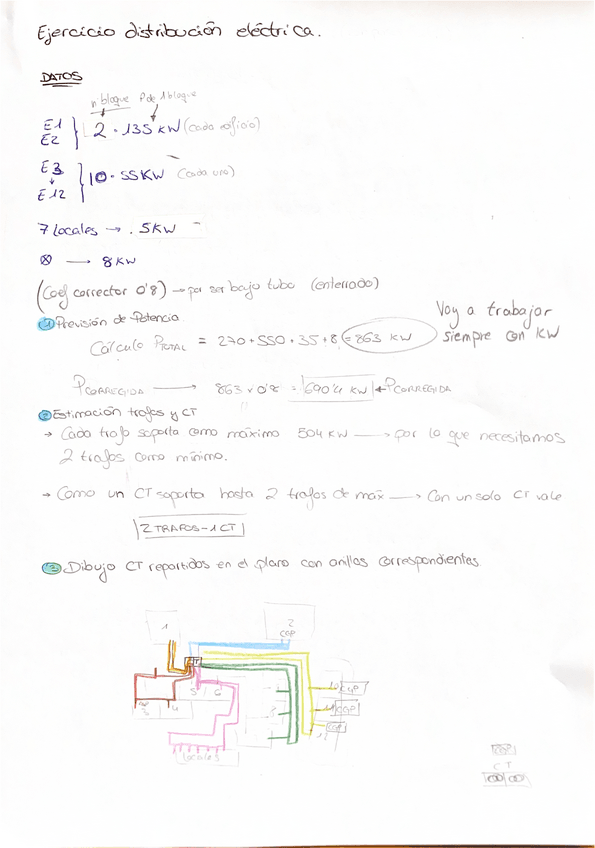 Ejercicio distribución eléctrica.
DATOS
nº bloque P de 1 bloque
E1
E2
2 · 135 KW (cada edificio)
E3
E12
10 · 55KW (cada uno)
7 locales → . 5KW
⊗ → 8 KW
(Coef corrector 0'8) → por ser bajo tubo (enterrado)
① Previsión de Potencia
Voy a trabajar
siempre con KW
Cálculo PTOTAL = 270 + 550 + 35 + 8 = 863 KW
PCORREGIDA → 863 x 0'8 = 690'4 KW ← PCORREGIDA
② Estimación trafos y CT
→ Cada trafo soporta como máximo 504 KW → por lo que necesitamos
2 trafos como mínimo.
→ Como un CT soporta hasta 2 trafos de máx → Con un solo CT vale
2 TRAFOS - 1 CT
③ Dibujo CT repartidos en el plano con anillas correspondientes.
1
2
CGP
CT
5 6
4
10 CGP
11 CGP
CGP
12
locales
CT